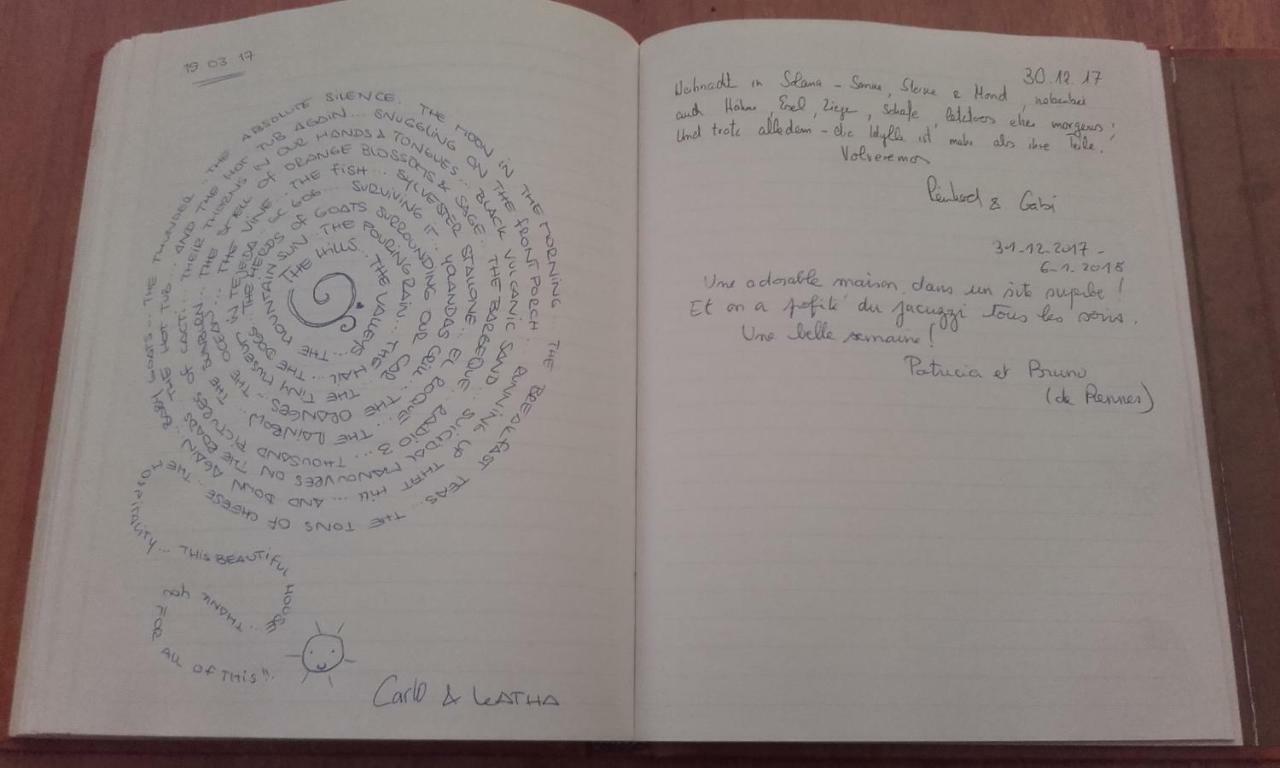 19 03 17
THE HILLS... THE VALLEYS... THE HAIL... THE MOUNTAIN SUN THE POURING RAIN... THE
ORANGES... THE DOGS... THE HERDS OF GOATS SURROUNDING OUR CAR
THE RAINBOW... THE TINY MUSEUM IN TEJEDA
SURVIVING IT... YOLANDAS GRILL...
THOUSAND PICTURES... THE OCEAN... THE VINE... THE FISH... SYLVESTER STALLONE... EL ROQUE
RADIO 3
SUICIDAL MANOUVRES ON THE ROADS
THE SUNBURN... THE SMELL OF ORANGE BLOSSOMS & SAGE... THE BARBEQUE
OF CACTI... THEIR THORNS IN OUR HANDS & TONGUES... BLACK VULCANIC SAND
RUNNING UP THAT HILL... AND DOWN AGAIN
THE HOT TUB... AND THE HOT TUB AGAIN... SNUGGLING ON THE FRONT PORCH
BABY GOATS... THE THUNDER... THE ABSOLUTE SILENCE. THE MOON IN THE MORNING... THE BREAKFAST TEAS... THE TONS OF CHEESE... THE
HOSPITALITY... THIS BEAUTIFUL HOUSE...
THANK YOU FOR ALL OF THIS!!
Carlo & KATHA
30.12.17
Weihnacht in Solana – Sonne, Sterne & Mond, nebenbei
auch Hähne, Esel, Ziege, Schafe, letzteres eher morgens!
Und trotz alledem – die Idylle ist mehr als ihre Teile!
Volveremos
Reinhard & Gabi
31.12.2017 -
6-1.2018
Une adorable maison dans un site superbe!
Et on a profité du jacuzzi tous les soirs.
Une belle semaine!
Patricia et Bruno
(de Rennes)